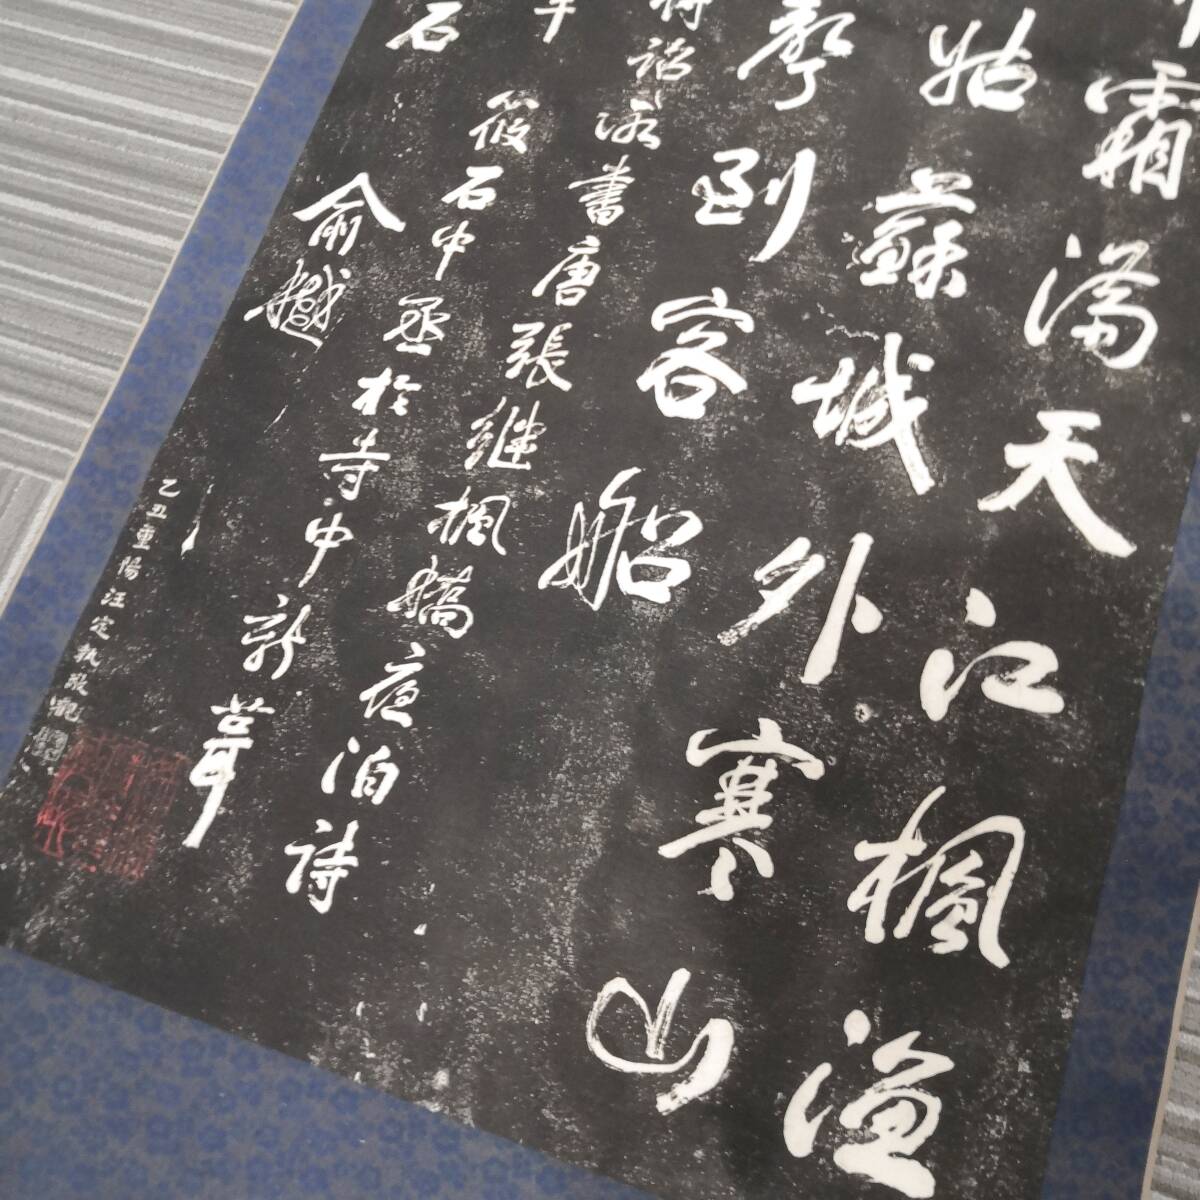 霜滿天江楓漁
姑蘇城外寒山
聲到客船
待詔所書唐張繼楓橋夜泊詩
午筱石中丞於寺中新葺
石
俞樾
乙丑重陽汪定執敬觀